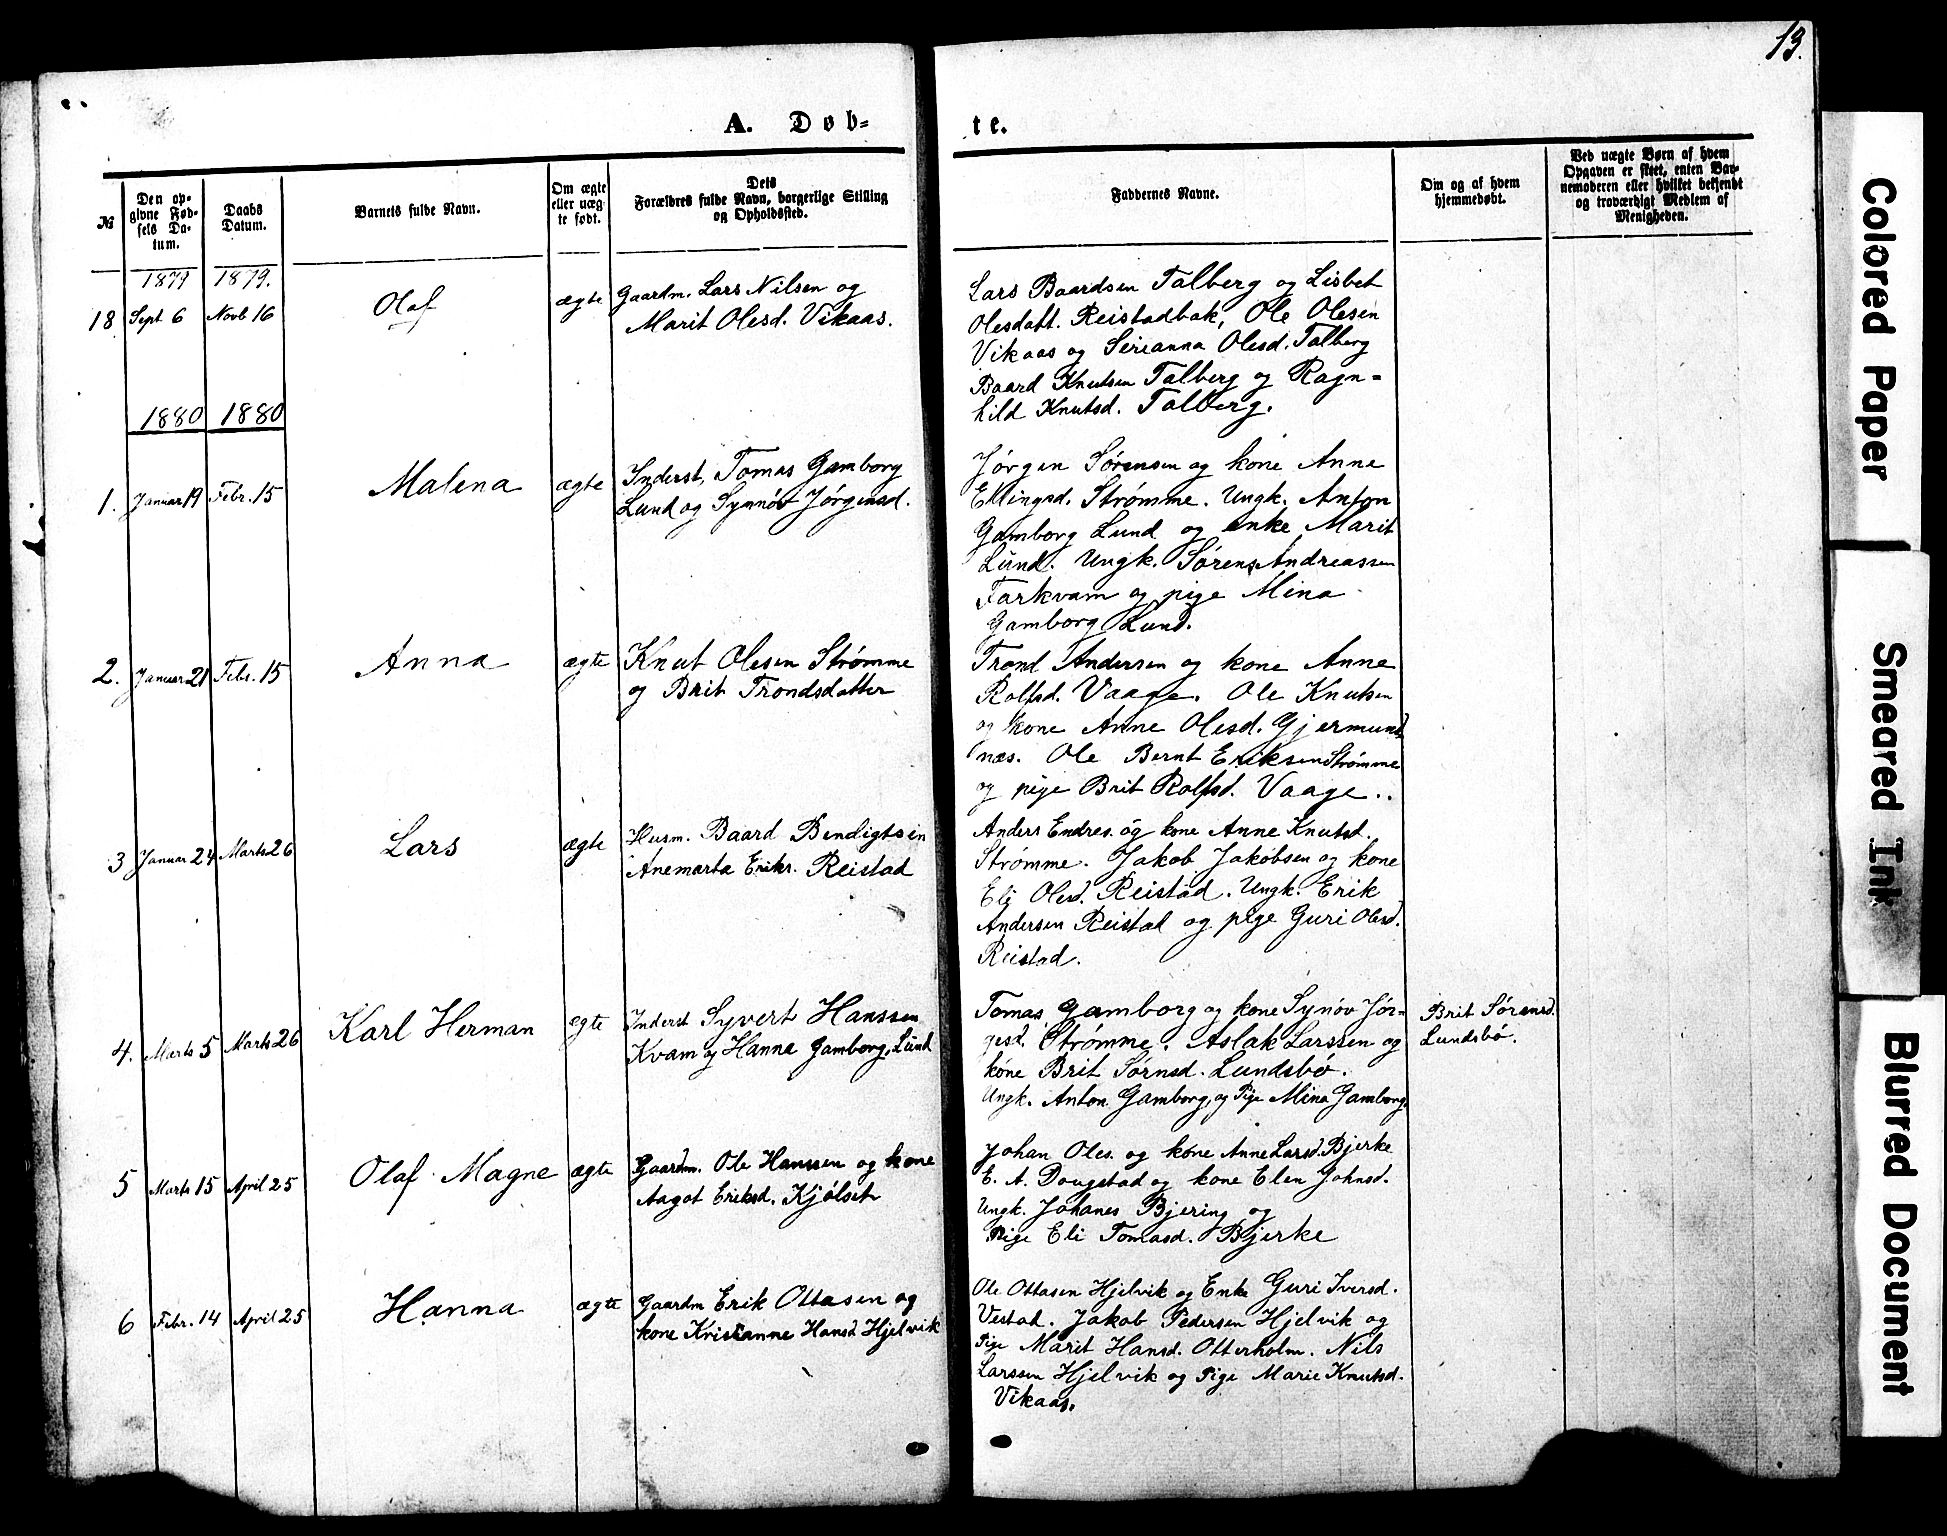 13.
A. Døb-
te.
№
Den op-
givne Fød-
sels Da-
tum.
Daabs
Datum.
Barnets fulde Navn.
Om ægte
eller uæg-
te født.
Dets
Forældres fulde Navn, borgerlige Stilling
og Opholdssted.
Faddernes Navne.
Om og af hvem
hjemmedøbt.
Ved uægte Børn af hvem
Opgaven er skeet, enten Bar-
nemoderen eller hvilket bekjendt
og troværdigt Medlem af
Menigheden.
1879 1879.
18 Sept 6 Novb 16 Olaf ægte
Gaardm. Lars Nilsen og
Marit Olesd. Vikaas.
Lars Baardsen Talberg og Lisbet
Olesdatt. Reistadbak, Ole Olesen
Vikaas og Serianna Olesd. Talberg
Baard Knutsen Talberg og Ragn=
hild Knutsd. Talberg.
1880 1880
1. Januar 19 Febr. 15 Malena ægte
Inderst, Tomas Gamborg
Lund og Synnøv Jørgensd.
Jørgen Sørensen og kone Anne
Ellingsd. Strømme. Ungk. Anton
Gamborg Lund og enke Marit
Lund. Ungk. Sørens Andreassen
Farkvam og pige Mina
Gamborg Lund.
2. Januar 21 Febr. 15 Anna ægte
Knut Olesen Strømme
og Brit Trondsdatter
Trond Andersen og kone Anne
Rolfsd. Vaage. Ole Knutsen
og kone Anne Olesd. Gjermund
næs. Ole Bernt Eriksen Strømme
og pige Brit Rolfsd. Vaage..
3 Januar 24 Marts 26 Lars ægte
Husm. Baard Bendigtsen
Anemarta Eriks. Reistad
Anders Endres. og kone Anne Knutsd.
Strømme. Jakob Jakobsen og kone
Eli Olesd. Reistad. Ungk. Erik
Andersen Reistad og pige Guri Olesd.
Reistad.
4. Marts 5 Marts 26 Karl Herman ægte
Inderst Syvert Hanssen
Kvam og Hanna Gamborg, Lund
Tomas Gamborg og kone Synøv Jør=
gesd. Strømme. Aslak Larssen og
kone Brit Sørnsd. Lundsbø.
Ungk. Anton Gamborg, og Pige Mina Gamborg.
Brit Sørensd.
Lundsbø.
5 Marts 15 April 25 Olaf Magne ægte
Gaardm. Ole Hanssen og kone
Aagot Eriksd. Kjølset
Johan Oles. og kone Anne Larsd. Bjerke
E. A. Dougstad og kone Elen Johnsd.
Ungk. Johanes Bjering og
Pige Eli Tomasd. Bjerke
6 Febr. 14 April 25 Hanna ægte
Gaardm Erik Ottasen og
kone Kristianne Hansd Hjelvik
Ole Ottasen Hjelvik og Enke Guri Iversd.
Vestad. Jakob Pedersen Hjelvik og
Pige Marit Hansd. Otterholm. Nils
Larssen Hjelvik og Pige Marie Knutsd.
Vikaas.
Colored Paper
Smeared Ink
Blurred Document